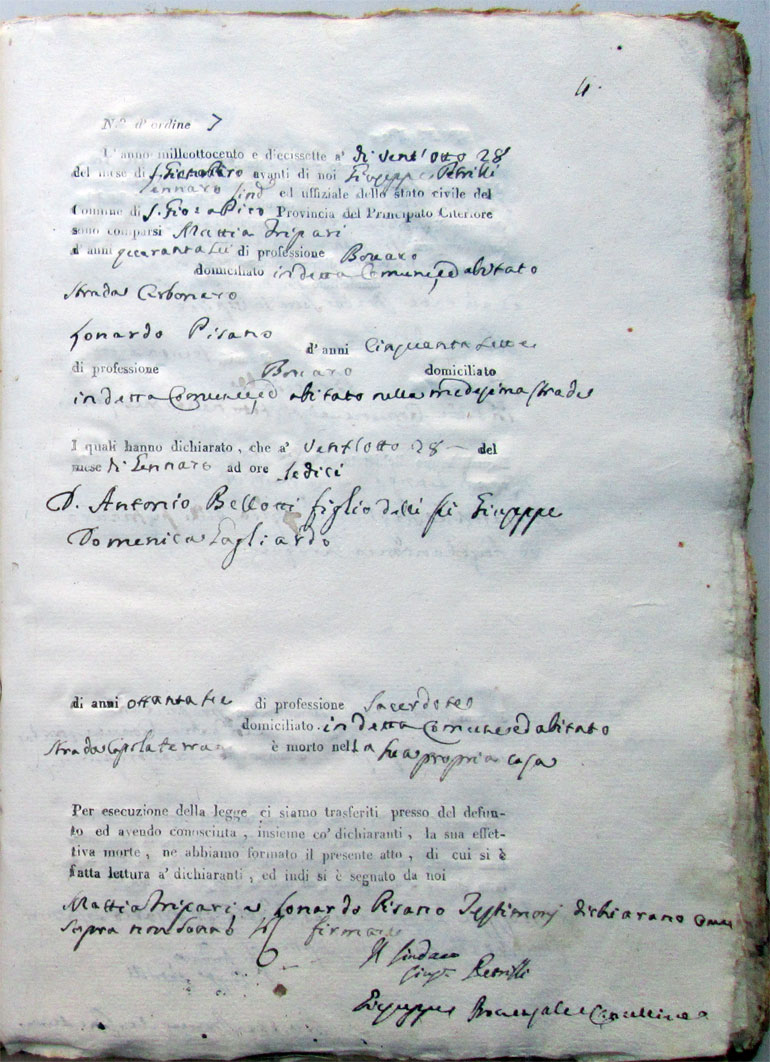 4.
N.º d'ordine 7
L'anno milleottocento e diecissette a' di vent'otto 28
del mese di avanti di noi Giuseppe Petrilli
Gennaro Sind ed uffiziale dello stato civile del
Comune di S. Gio: a Piro Provincia del Principato Citeriore
sono comparsi Mattia Tripari
d'anni quaranta sei di professione Bonaro
domiciliato in detta Comune, ed abitato
strada Carbonaro
Lonardo Pisano d'anni Cinquanta sette
di professione Bonaro domiciliato
in detta Comune, ed abitato nella medesima strada
I quali hanno dichiarato, che a' vent'otto 28 del
mese di Gennaro ad ore sedici
D. Antonio Bellotti figlio delli fu Giuseppe
Domenica Gagliardo
di anni ottanta tre di professione Sacerdote
domiciliato in detta Comune ed abitato
strada Capolaterra è morto nella sua propria casa
Per esecuzione della legge ci siamo trasferiti presso del defun-
to ed avendo conosciuta, insieme co' dichiaranti, la sua effet-
tiva morte, ne abbiamo formato il presente atto, di cui si è
fatta lettura a' dichiaranti, ed indi si è segnato da noi
Mattia Tripari, e Lonardo Pisano Testimonj dichiarano come
sopra non sanno firmare
Il Sindaco
Gius.e Petrilli
Giuseppe Cancelliere